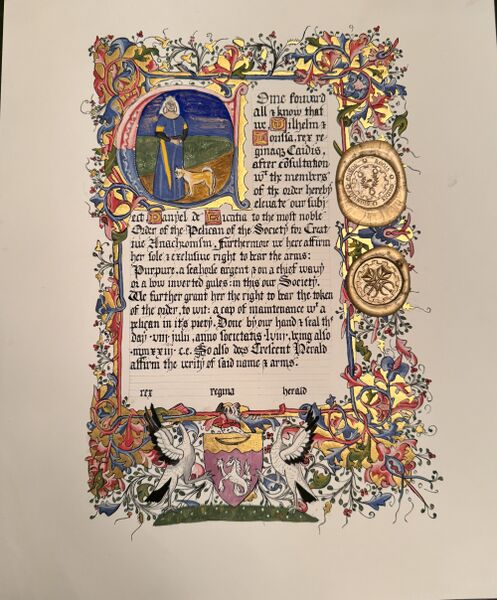 Come forward
all & know that
we Wilhelm &
Tonisa, rex re-
ginaq Caidis,
after cōsultation
wt the members
of the order hereby
elevate our subj
ect Danyel de Licatia to the most noble
Order of the Pelican of the Society for Creat
ive Anachronism. Furthermore we here affirm
her sole & exclusive right to bear the arms:
Purpure, a seahorse argent & on a chief wavy
or a bow inverted gules: in this our Society.
We further grant her the right to bear the token
of the order, to wit: a cap of maintenance wt a
pelican in it's piety. Done by our hand & seal this
day viij julii, anno societatis lviii, being also
mmxxiij c.e. So also does Crescent Herald
affirm the verity of said name & arms.
rex regina herald